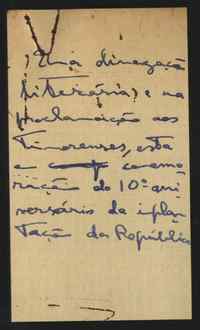 , Ena divagação
literária, e na
proclamação aos
Timorenses, esta
e comemo
ração do 10º ani
versário da iplan
tação da República